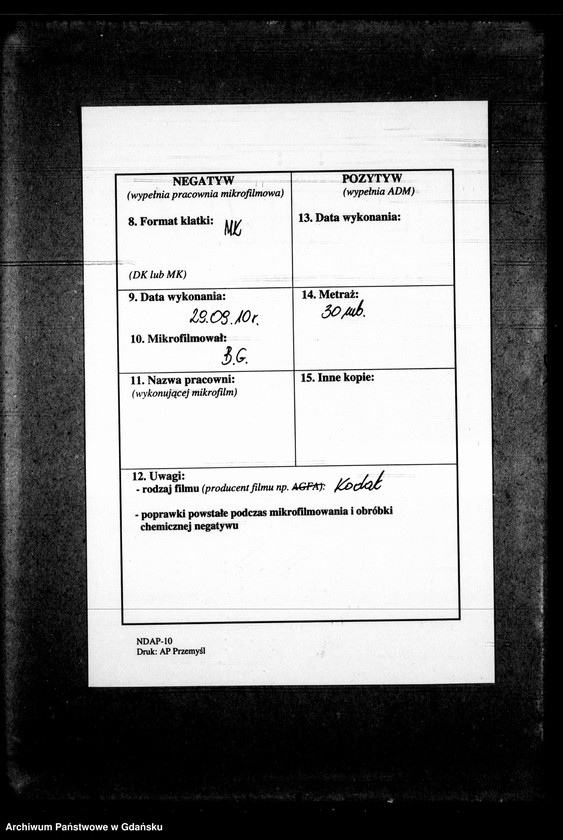 NEGATYW
(wypełnia pracownia mikrofilmowa)
8. Format klatki: MK
(DK lub MK)
9. Data wykonania:
29.09.10r.
10. Mikrofilmował:
B.G.
11. Nazwa pracowni:
(wykonującej mikrofilm)
POZYTYW
(wypełnia ADM)
13. Data wykonania:
14. Metraż:
30 mb.
15. Inne kopie:
12. Uwagi:
- rodzaj filmu (producent filmu np. AGFA): Kodak
- poprawki powstałe podczas mikrofilmowania i obróbki
chemicznej negatywu
NDAP-10
Druk: AP Przemyśl
Archiwum Państwowe w Gdańsku